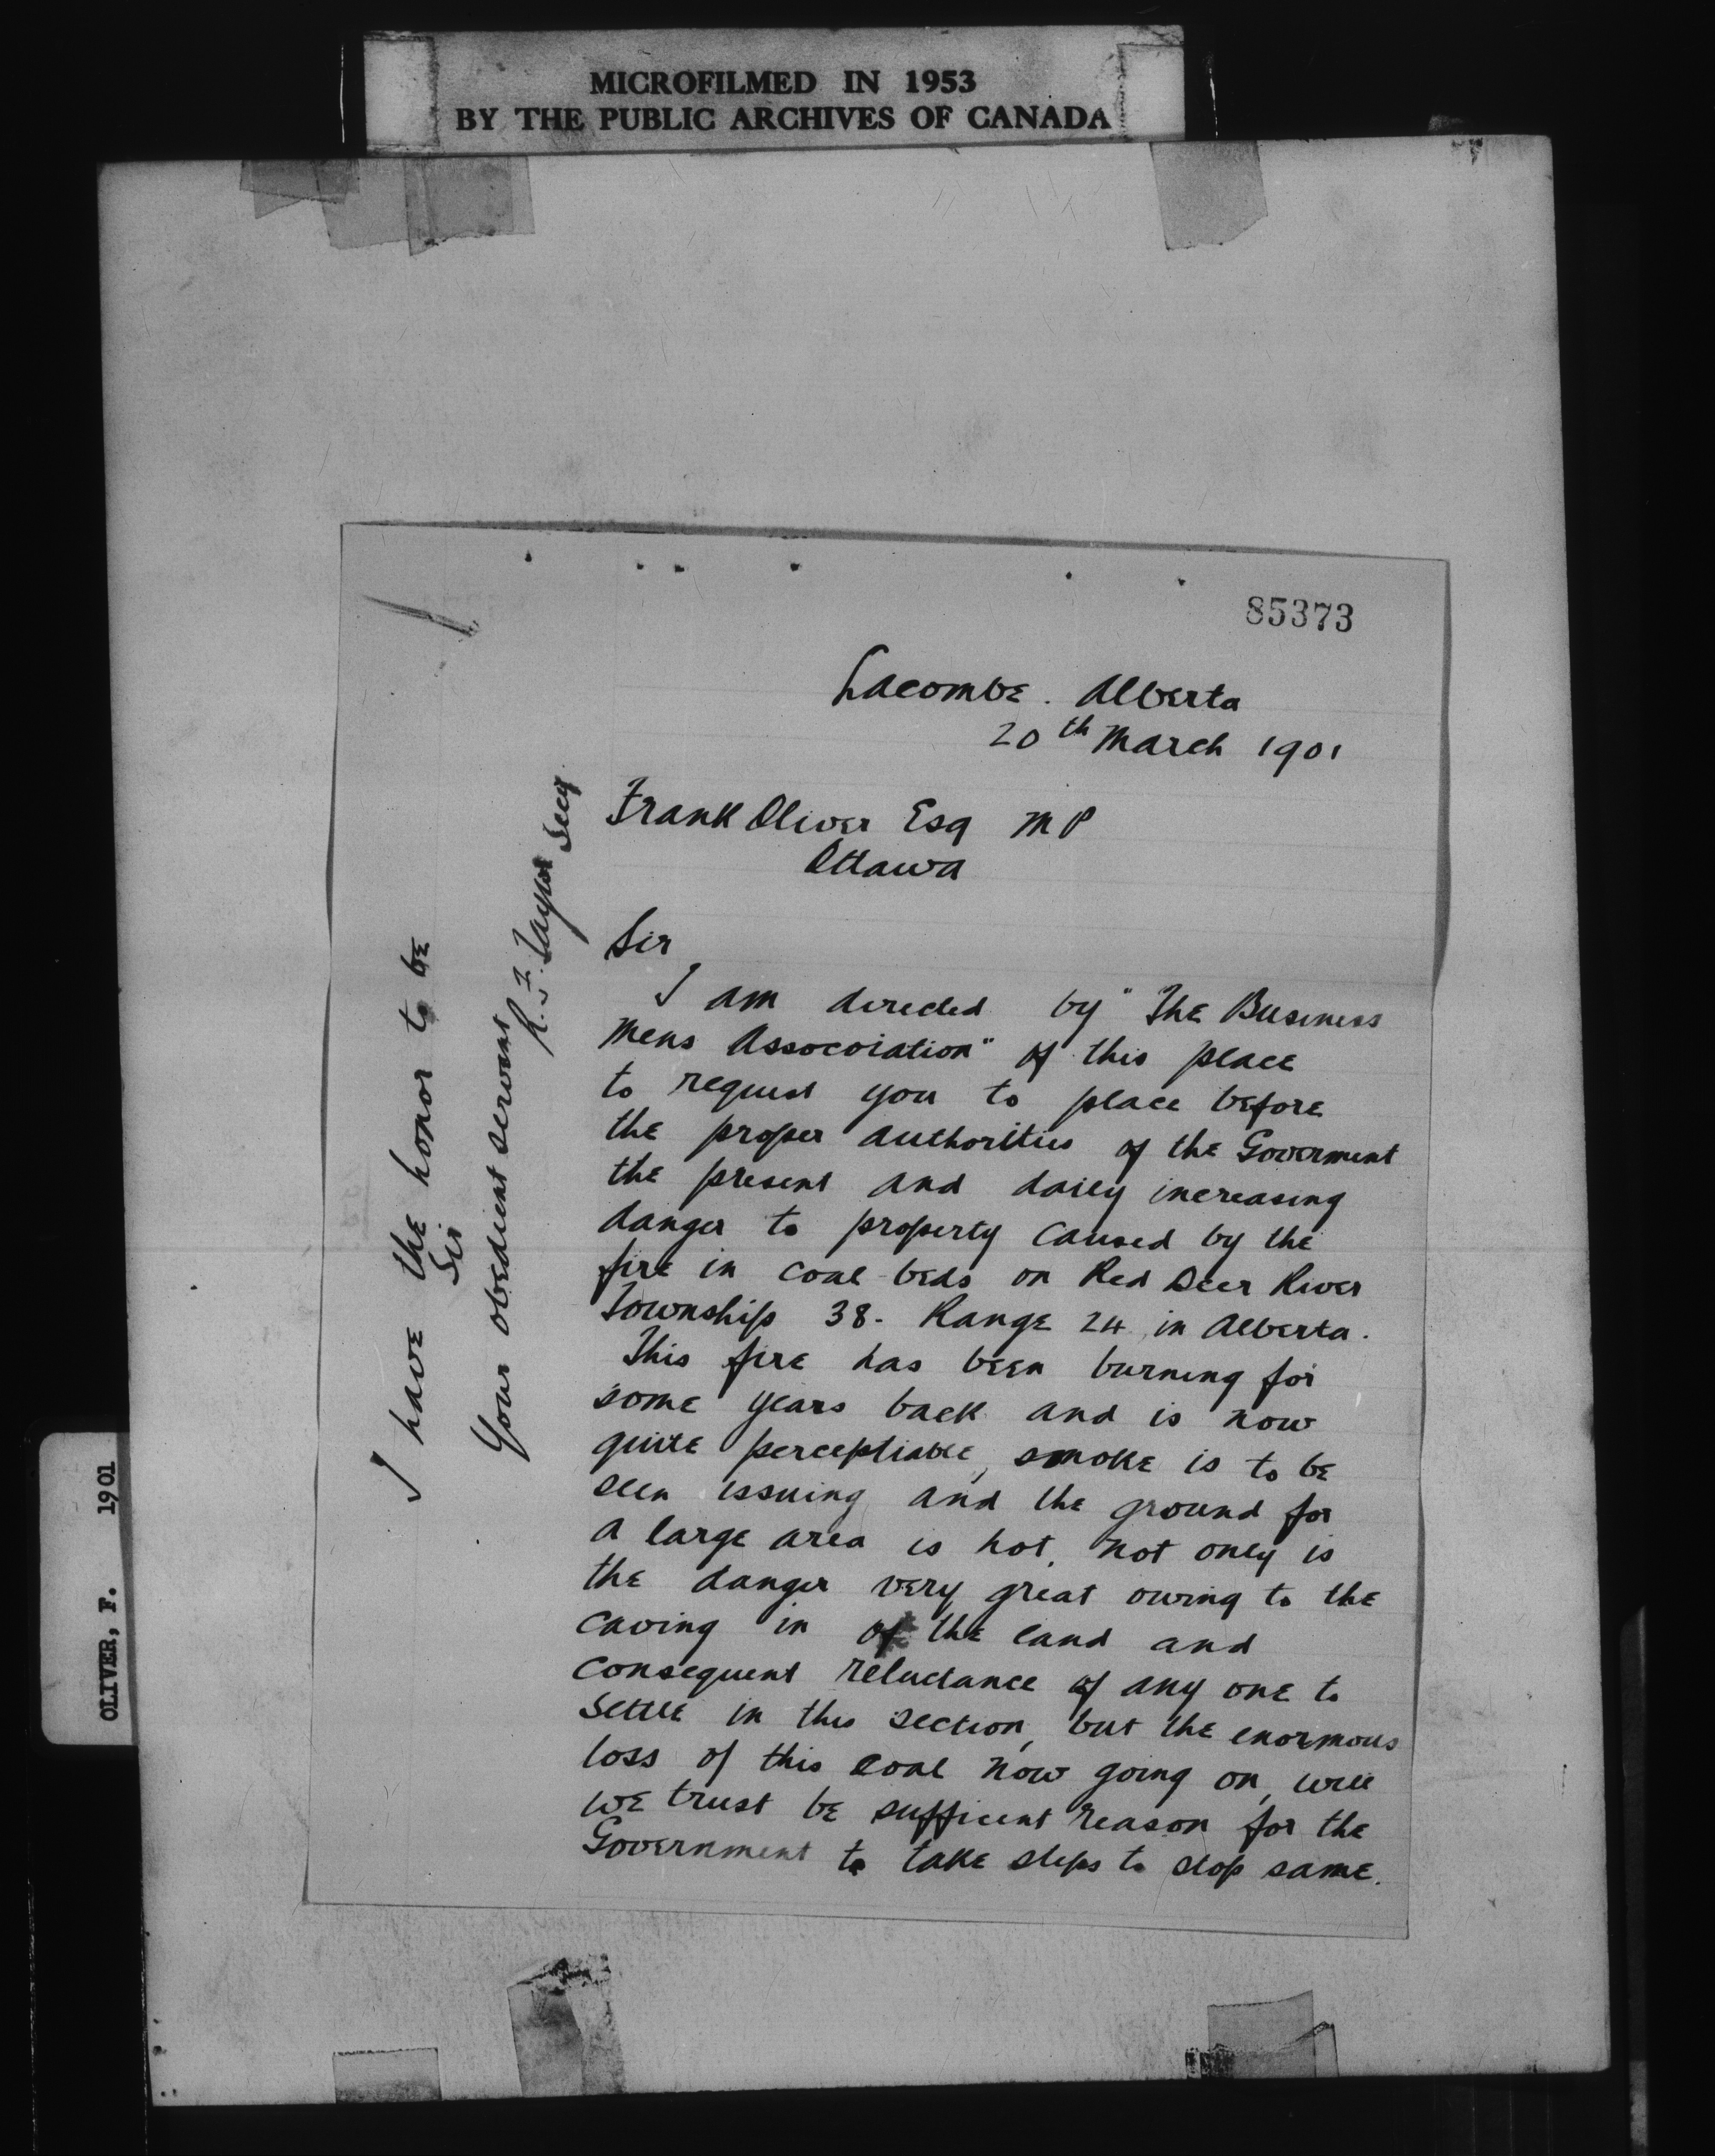 MICROFILMED IN 1953
BY THE PUBLIC ARCHIVES OF CANADA
85373
Lacombe. Alberta
20th March 1901
Frank Oliver Esq M P
Ottawa
Sir
I am directed by "The Business
Mens Assocoiation" of this place
to request you to place before
the proper authorities of the Goverment
the present and daily increasing
danger to property caused by the
fire in coal beds on Red Deer River
Township 38. Range 24 in Alberta.
This fire has been burning for
some years back and is now
quite perceptiable, smoke is to be
seen issuing and the ground for
a large area is hot. Not only is
the danger very great owing to the
caving in of the land and
consequent reluctance of any one to
settle in this section, but the enormous
loss of this coal now going on, will
we trust be sufficent reason for the
Government to take steps to stop same.
I have the honor to be
Sir
Your obedient servant
R. J. Taylor Secy
OLIVER, F. 1901